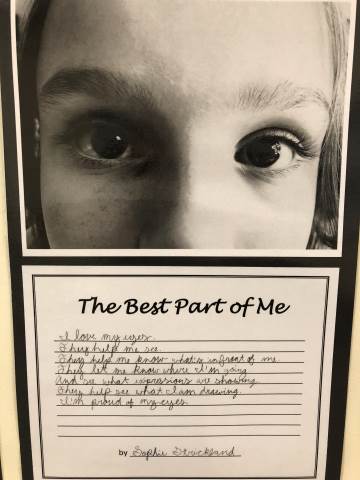 The Best Part of Me
I love my eyes.
They help me see.
They help me know what's infront of me.
They let me know where I'm going.
And see what expressions we showing.
They help see what I am drawing.
I'm proud of my eyes.
by Sophie Strickland